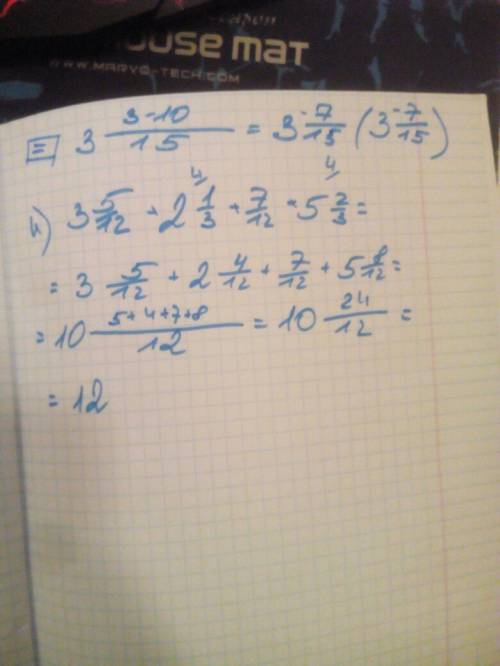 MOUSE MAT
WWW.MARVO-TECH.COM
= 3 3-10/15 = 3 -7/15 (3 -7/15)
4 4
и) 3 5/12 + 2 1/3 + 7/12 + 5 2/3 =
= 3 5/12 + 2 4/12 + 7/12 + 5 8/12 =
= 10 5+4+7+8/12 = 10 24/12 =
= 12